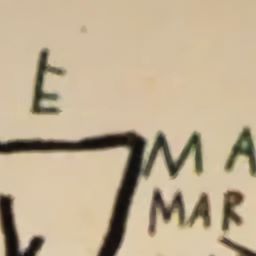 E
MA
MAR